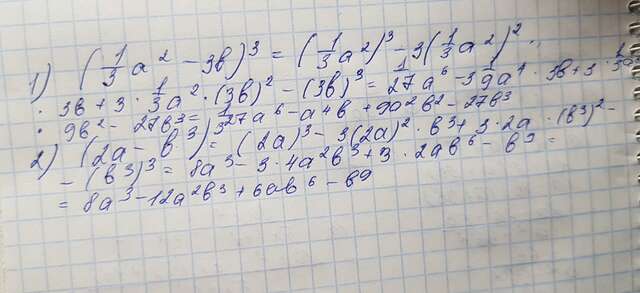 1) (1/3 a² - 3b)³ = (1/3 a²)³ - 3(1/3 a²)² ·
· 3b + 3 · 1/3 a² · (3b)² - (3b)³ = 1/27 a⁶ - 3 1/9 a⁴ · 3b + 3 · 1/3 a²
· 9b² - 27b³ = 1/27 a⁶ - a⁴b + 9a²b² - 27b³
2) (2a - b³)³ = (2a)³ - 3(2a)² · b³ + 3 · 2a · (b³)² -
- (b³)³ = 8a³ - 3 · 4a²b³ + 3 · 2ab⁶ - b⁹ =
= 8a³ - 12a²b³ + 6ab⁶ - b⁹